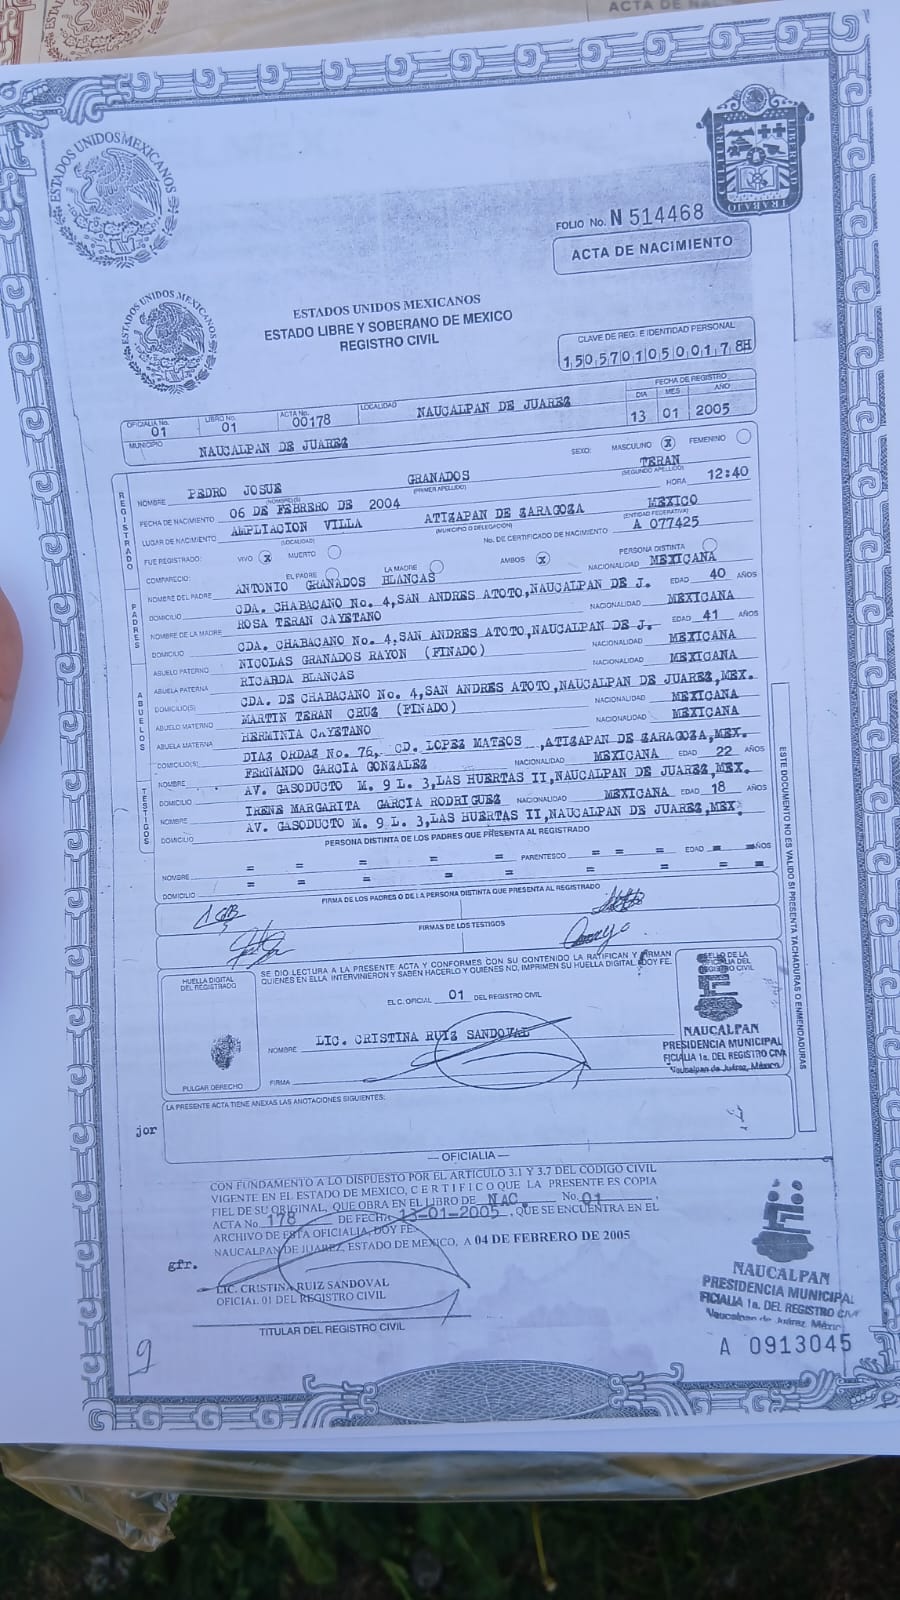 ACTA DE NA
ESTADOS UNIDOS MEXICANOS
LIBERTAD
TRABAJO
FOLIO No. N 514468
ACTA DE NACIMIENTO
ESTADOS UNIDOS MEXICANOS
ESTADOS UNIDOS MEXICANOS
ESTADO LIBRE Y SOBERANO DE MEXICO
REGISTRO CIVIL
CLAVE DE REG. E IDENTIDAD PERSONAL
1 5 0 5 7 0 1 0 5 0 0 1 7 8H
OFICIALIA No. 01 LIBRO No. 01 ACTA No. 00178 LOCALIDAD NAUCALPAN DE JUAREZ FECHA DE REGISTRO DIA MES AÑO 13 01 2005
MUNICIPIO NAUCALPAN DE JUAREZ
SEXO: MASCULINO X FEMENINO
REGISTRADO
NOMBRE PEDRO JOSUE GRANADOS TERAN
(NOMBRE(S)) (PRIMER APELLIDO) (SEGUNDO APELLIDO)
FECHA DE NACIMIENTO 06 DE FEBRERO DE 2004 HORA 12:40
LUGAR DE NACIMIENTO AMPLIACION VILLA ATIZAPAN DE ZARAGOZA MEXICO
(LOCALIDAD) (MUNICIPIO O DELEGACION) (ENTIDAD FEDERATIVA)
FUE REGISTRADO: VIVO X MUERTO No. DE CERTIFICADO DE NACIMIENTO A 077425
COMPARECIO: EL PADRE LA MADRE AMBOS X PERSONA DISTINTA
PADRES
NOMBRE DEL PADRE ANTONIO GRANADOS BLANCAS NACIONALIDAD MEXICANA EDAD 40 AÑOS
DOMICILIO CDA. CHABACANO No. 4,SAN ANDRES ATOTO,NAUCALPAN DE J.
NOMBRE DE LA MADRE ROSA TERAN CAYETANO NACIONALIDAD MEXICANA EDAD 41 AÑOS
DOMICILIO CDA. CHABACANO No. 4,SAN ANDRES ATOTO,NAUCALPAN DE J.
ABUELOS
ABUELO PATERNO NICOLAS GRANADOS RAYON (FINADO) NACIONALIDAD MEXICANA
ABUELA PATERNA RICARDA BLANCAS NACIONALIDAD MEXICANA
DOMICILIO(S) CDA. DE CHABACANO No. 4,SAN ANDRES ATOTO,NAUCALPAN DE JUAREZ,MEX.
ABUELO MATERNO MARTIN TERAN CRUZ (FINADO) NACIONALIDAD MEXICANA
ABUELA MATERNA HERMINIA CAYETANO NACIONALIDAD MEXICANA
DOMICILIO(S) DIAZ ORDAZ No. 76, CD. LOPEZ MATEOS ,ATIZAPAN DE ZARAGOZA,MEX.
TESTIGOS
NOMBRE FERNANDO GARCIA GONZALEZ NACIONALIDAD MEXICANA EDAD 22 AÑOS
DOMICILIO AV. GASODUCTO M. 9 L. 3,LAS HUERTAS II,NAUCALPAN DE JUAREZ,MEX.
NOMBRE IRENE MARGARITA GARCIA RODRIGUEZ NACIONALIDAD MEXICANA EDAD 18 AÑOS
DOMICILIO AV. GASODUCTO M. 9 L. 3,LAS HUERTAS II,NAUCALPAN DE JUAREZ,MEX.
PERSONA DISTINTA DE LOS PADRES QUE PRESENTA AL REGISTRADO
NOMBRE = = = = = PARENTESCO = = = EDAD = = AÑOS
DOMICILIO = = = = = = = = = =
FIRMA DE LOS PADRES O DE LA PERSONA DISTINTA QUE PRESENTA AL REGISTRADO
FIRMAS DE LOS TESTIGOS
HUELLA DIGITAL DEL REGISTRADO
PULGAR DERECHO
SE DIO LECTURA A LA PRESENTE ACTA Y CONFORMES CON SU CONTENIDO LA RATIFICAN Y FIRMAN
QUIENES EN ELLA INTERVINIERON Y SABEN HACERLO Y QUIENES NO, IMPRIMEN SU HUELLA DIGITAL. DOY FE.
EL C. OFICIAL 01 DEL REGISTRO CIVIL
NOMBRE LIC. CRISTINA RUIZ SANDOVAL
FIRMA
SELLO DE LA
OFICIALIA DEL
REGISTRO CIVIL
NAUCALPAN
PRESIDENCIA MUNICIPAL
FICIALIA 1a. DEL REGISTRO CIVI
Naucalpan de Juárez, México
ESTE DOCUMENTO NO ES VALIDO SI PRESENTA TACHADURAS O ENMENDADURAS
LA PRESENTE ACTA TIENE ANEXAS LAS ANOTACIONES SIGUIENTES:
jor
— OFICIALIA —
CON FUNDAMENTO A LO DISPUESTO POR EL ARTICULO 3.1 Y 3.7 DEL CODIGO CIVIL
VIGENTE EN EL ESTADO DE MEXICO, C E R T I F I C O QUE LA PRESENTE ES COPIA
FIEL DE SU ORIGINAL, QUE OBRA EN EL LIBRO DE NAC. No. 01,
ACTA No. 178 DE FECHA 13-01-2005, QUE SE ENCUENTRA EN EL
ARCHIVO DE ESTA OFICIALIA, DOY FE.
NAUCALPAN DE JUAREZ, ESTADO DE MEXICO, A 04 DE FEBRERO DE 2005
gfr.
LIC. CRISTINA RUIZ SANDOVAL
OFICIAL 01 DEL REGISTRO CIVIL
TITULAR DEL REGISTRO CIVIL
NAUCALPAN
PRESIDENCIA MUNICIPAL
FICIALIA 1a. DEL REGISTRO CIVI
Naucalpan de Juárez México
A 0913045
9